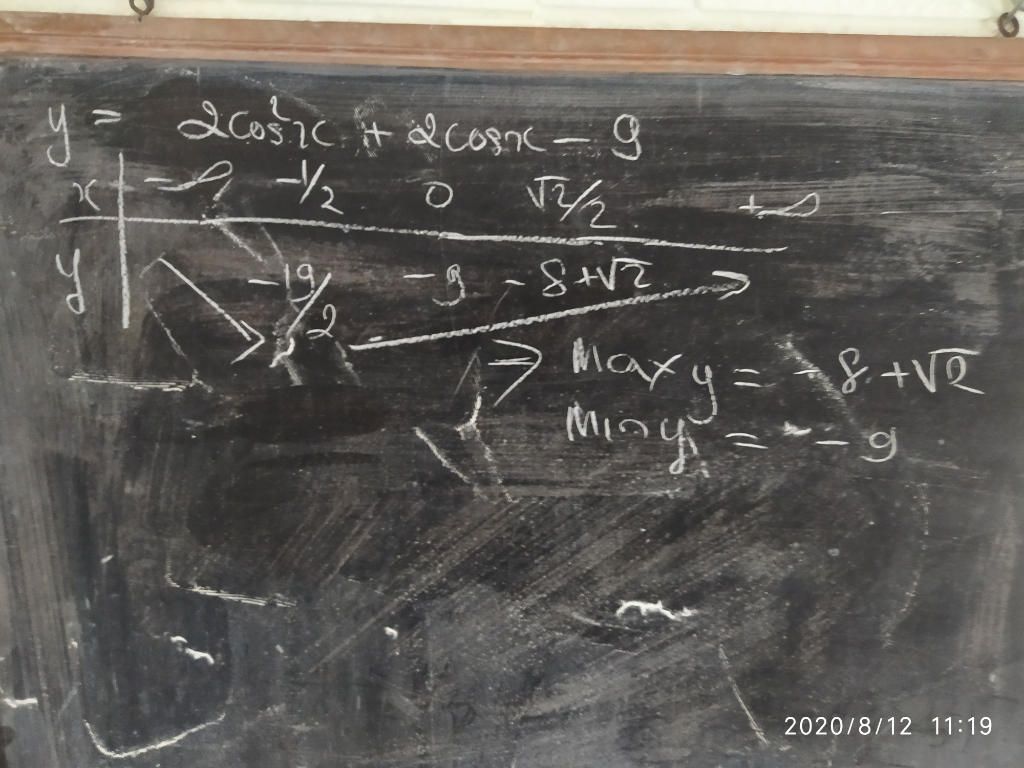 y = 2cos²x + 2cosx - 9
x -∞ -1/2 0 √2/2 +∞
y -19/2 -9 -8+√2
⇒ Max y = -8+√2
Min y = -9
2020/8/12 11:19